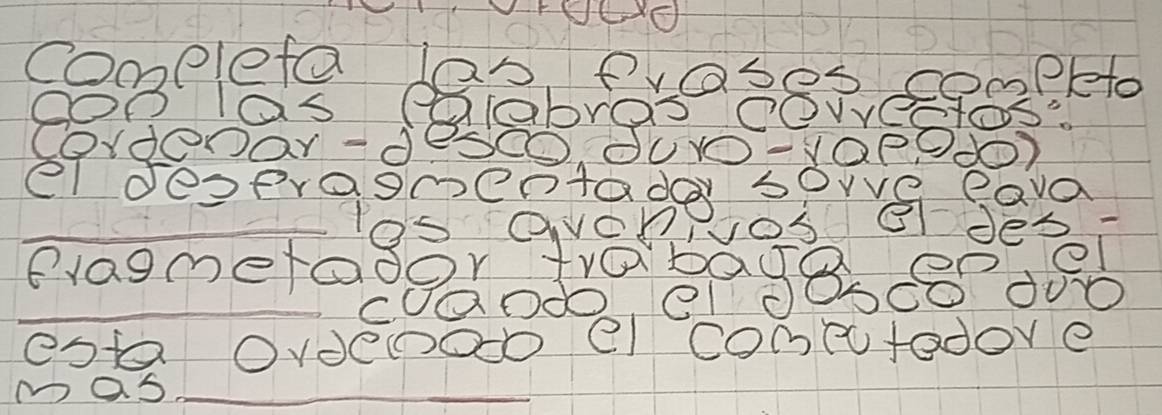 Completa las frases completo
con las palabras correctos:
(ordenar - desco duro - rapodo)
el desfragmentador sorve para
__________ los archivos el des-
fragmetador trabaja en el
__________ cuando el dosco duro
esta ordenado el computadore
mas __________